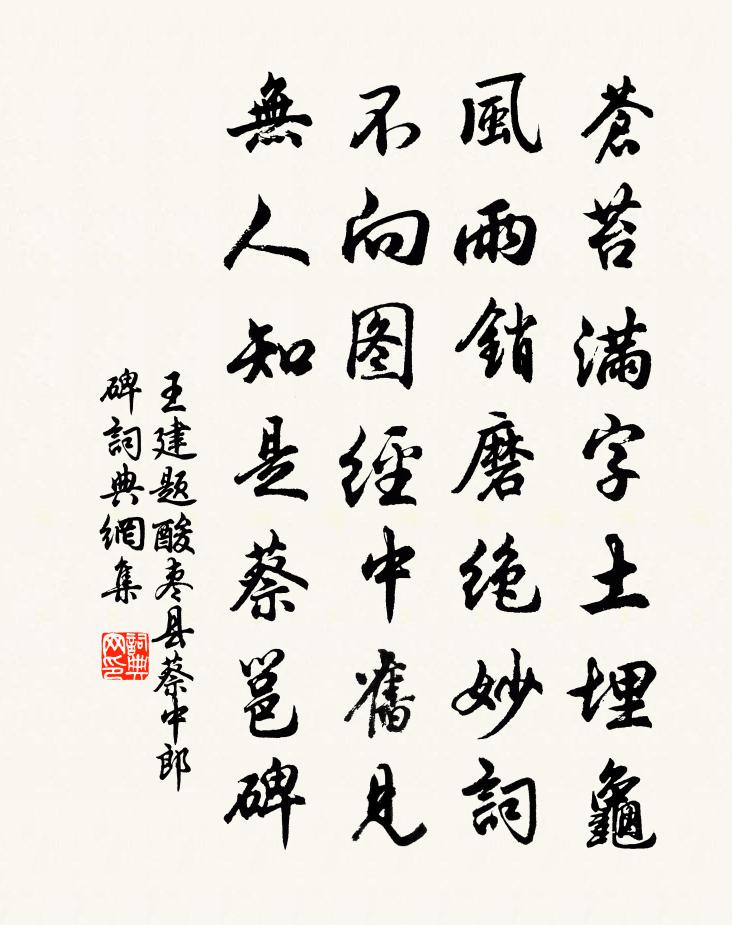 蒼苔滿字土埋龜
風雨銷磨絶妙詞
不向图經中舊見
無人知是蔡邕碑
王建题酸枣县蔡中郎
碑詞典網集
詞典
网印